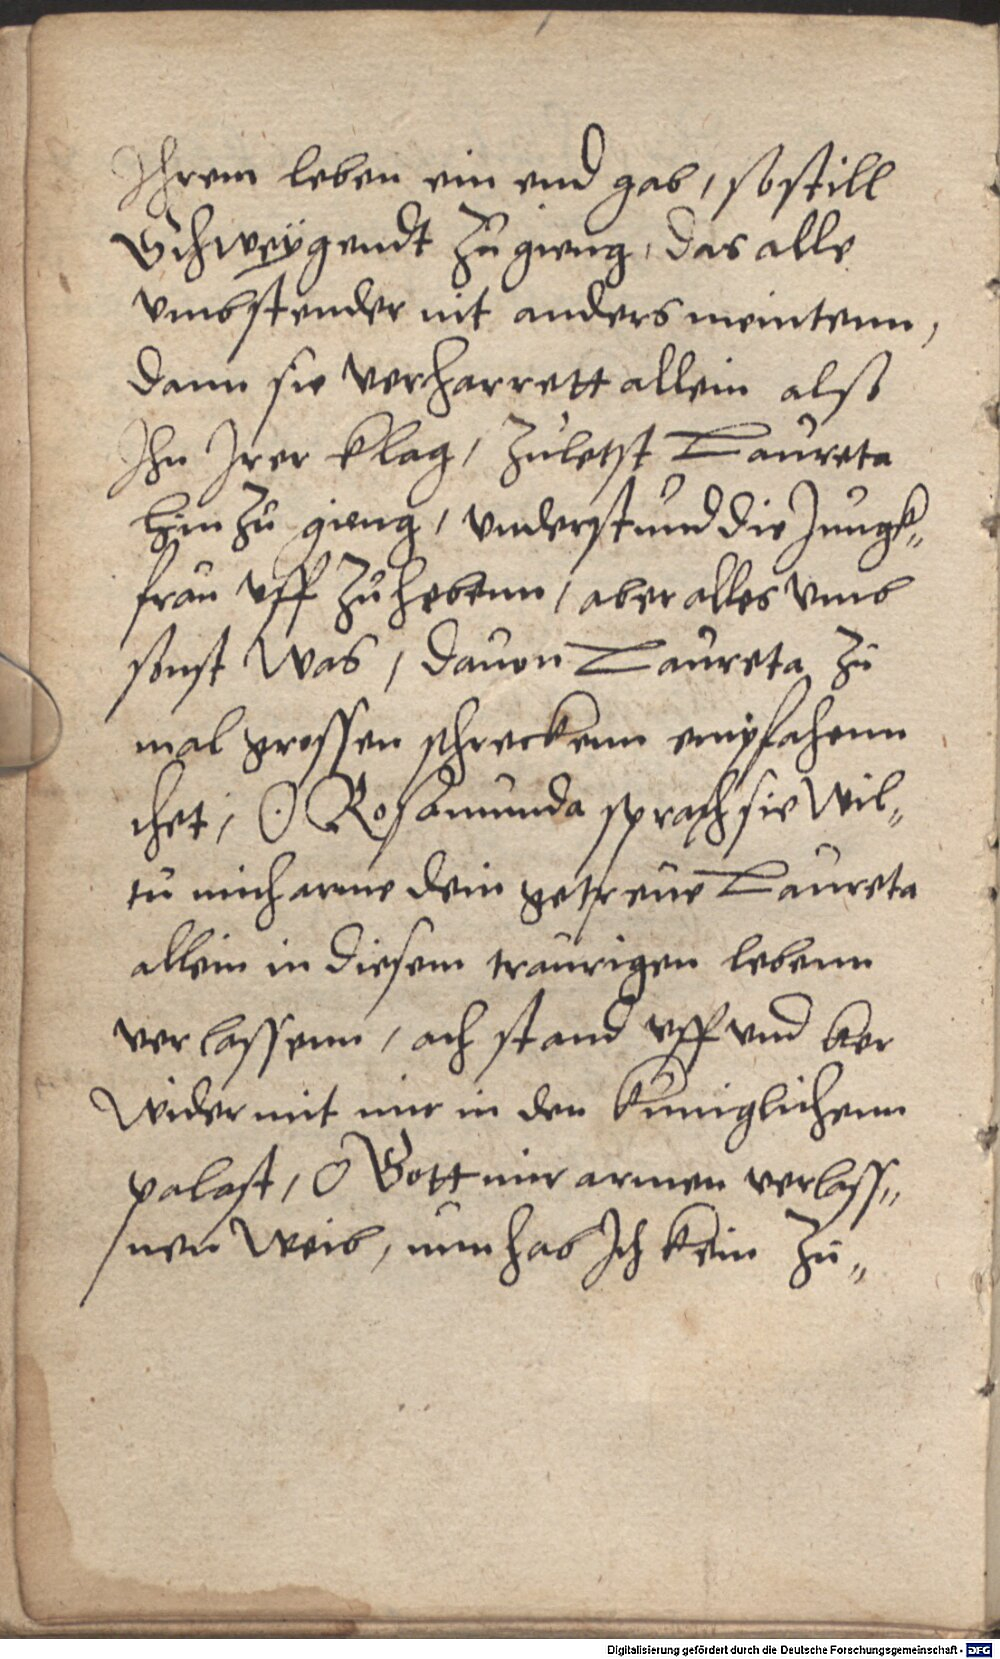 Ihrem leben ein end gab, so still
Schweÿgendt zů gieng, das alle
vmbstender nit anders meintenn,
dann sie verharrett allein also
Ihn Irer klag, zuletst Laureta
hin zů gieng, vnderstund die Jungk„
frau vff zů hebenn, aber alles vmb
sonst was, dauon Laureta zů
mal grossen schreckenn empfahenn
thet, O Rosamunda sprach sie wil„
tu mich arme dein getreue Laureta
allein in diesem traurigen lebenn
verlassenn, ach stand vff vnd ker
wider mit mir in den kuniglichenn
palast, O Gott mir armen verlass„
nen weib, nun hab Ich kein zů„
Digitalisierung gefördert durch die Deutsche Forschungsgemeinschaft - DFG